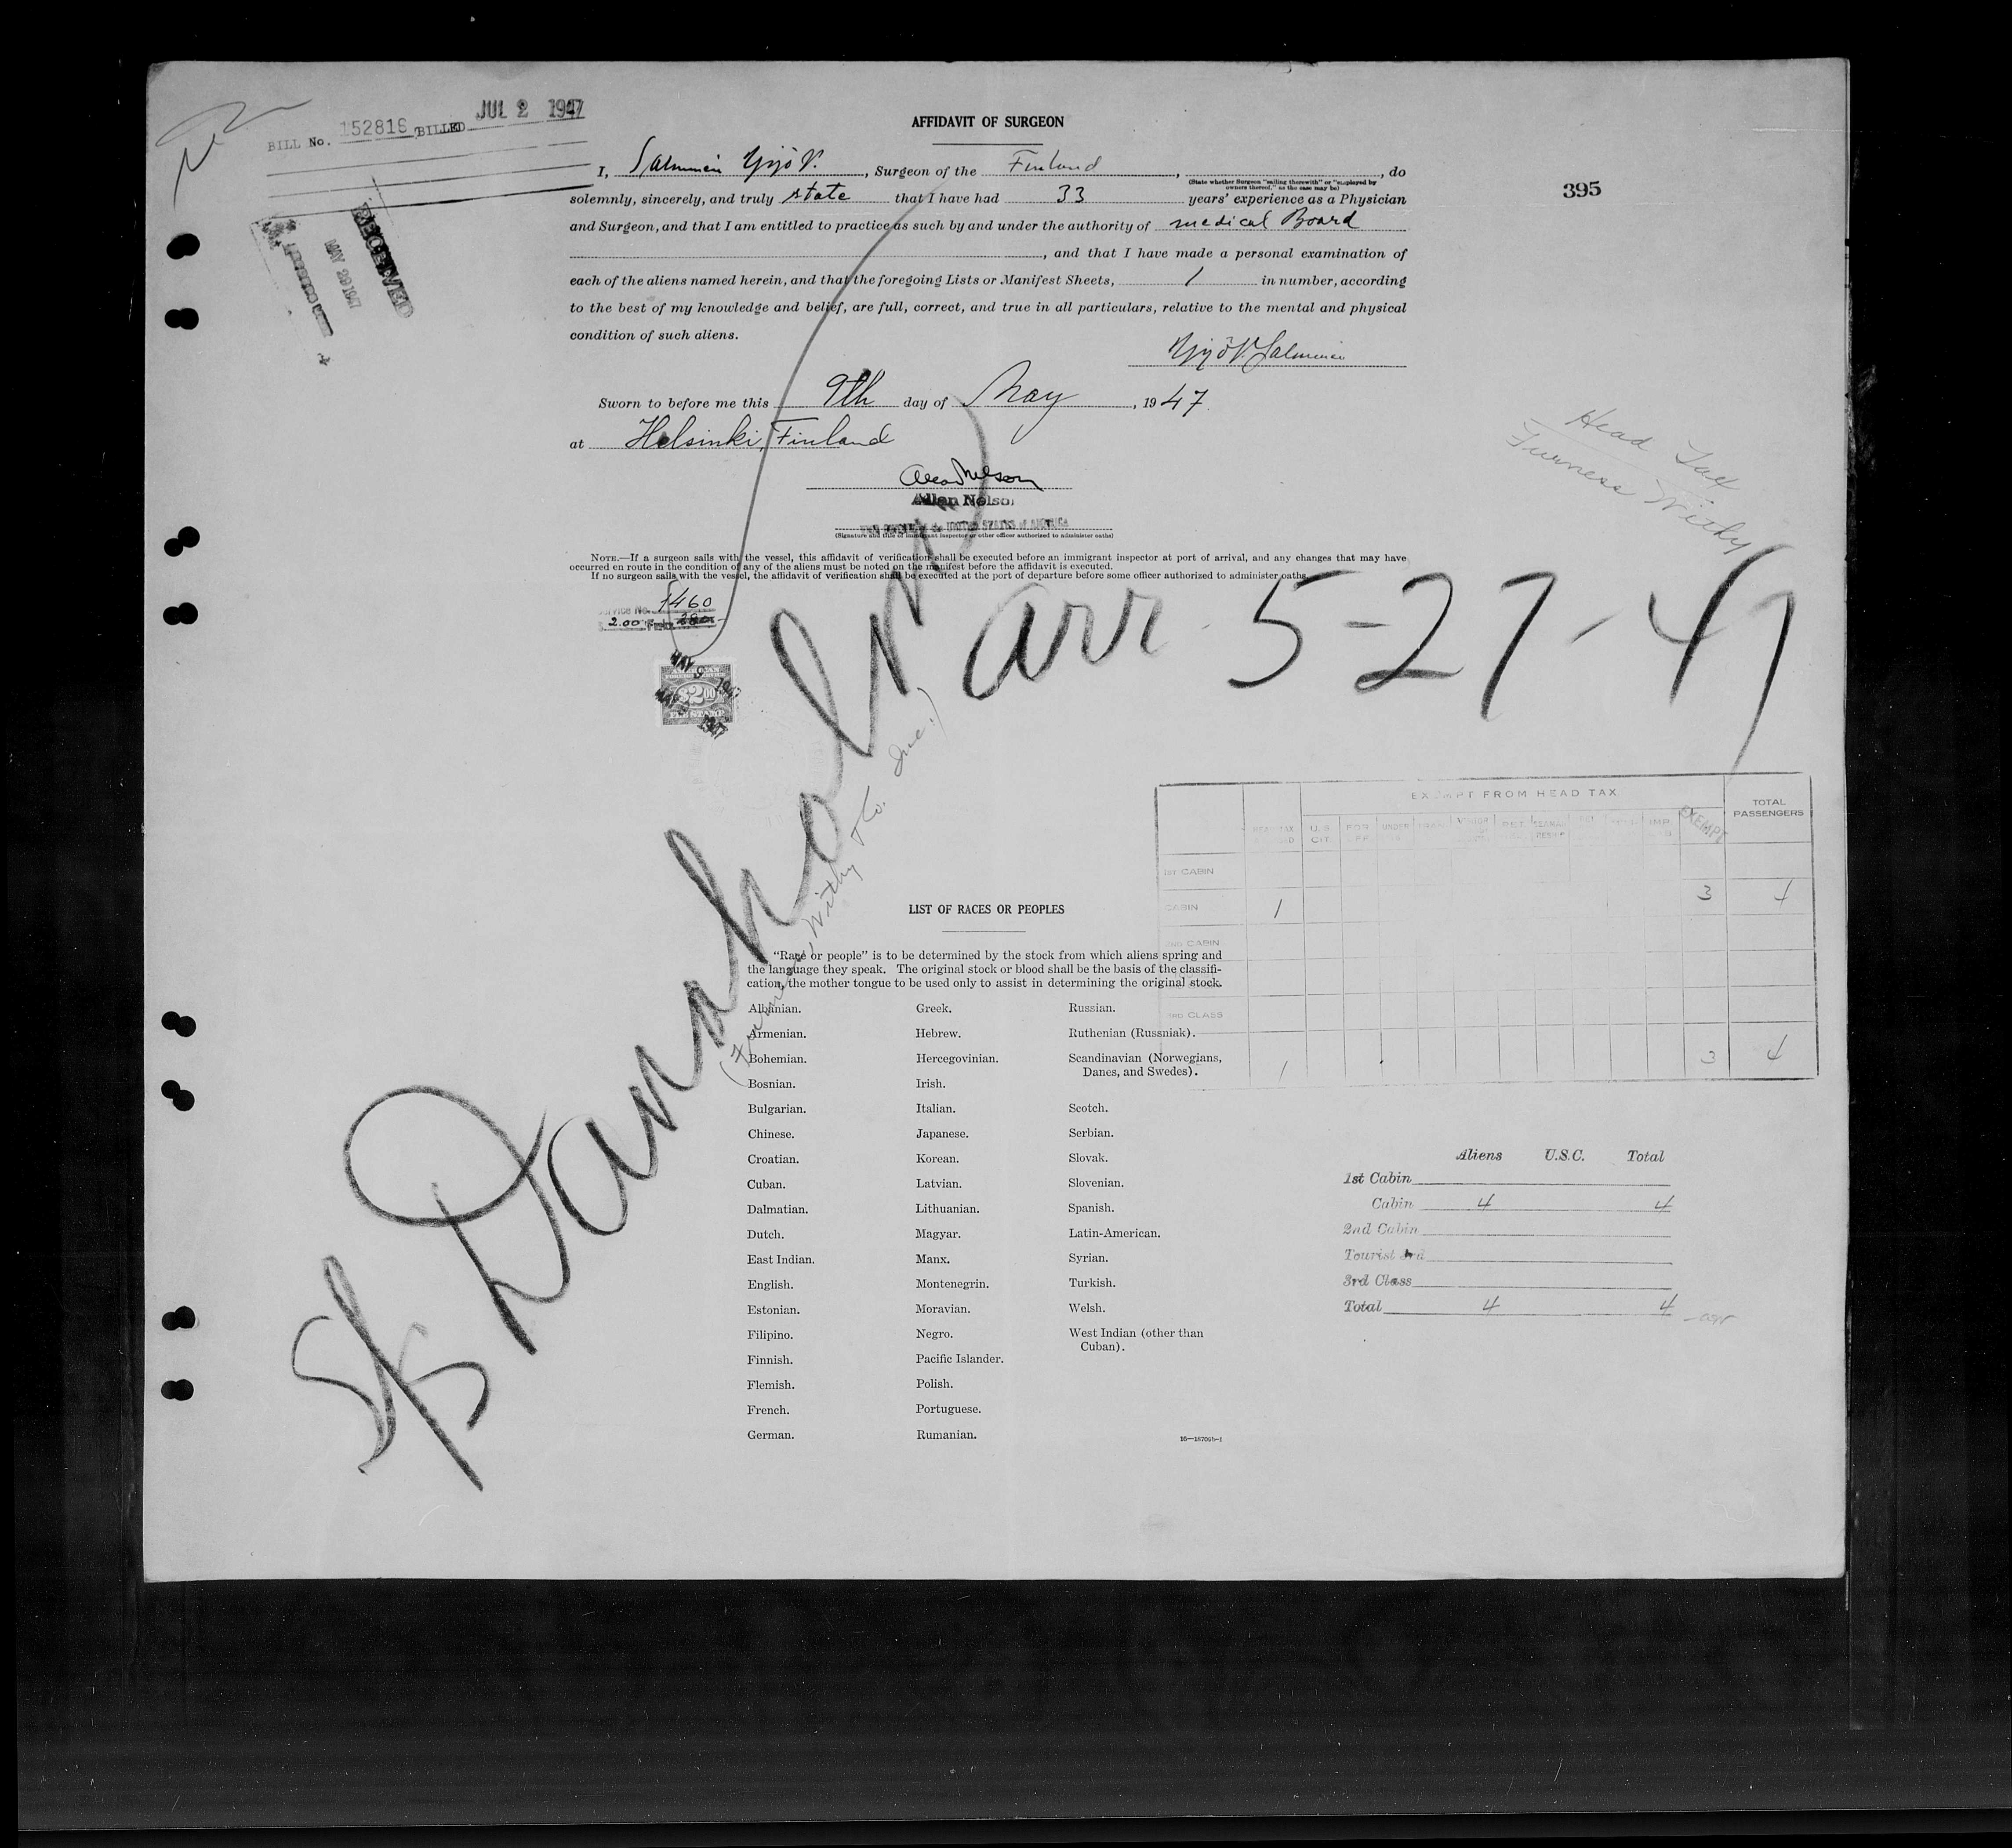 BILL No. 152816 BILLED JUL 2 1947
RECEIVED
MAY 29 1947
395
AFFIDAVIT OF SURGEON
I, Salminen Yrjö V., Surgeon of the Finland, , do
(State whether Surgeon "sailing therewith" or "employed by
owners thereof," as the case may be)
solemnly, sincerely, and truly state that I have had 33 years' experience as a Physician
and Surgeon, and that I am entitled to practice as such by and under the authority of medical Board
, and that I have made a personal examination of
each of the aliens named herein, and that the foregoing Lists or Manifest Sheets, 1 in number, according
to the best of my knowledge and belief, are full, correct, and true in all particulars, relative to the mental and physical
condition of such aliens.
Yrjö V. Salminen
Sworn to before me this 9th day of May, 1947.
at Helsinki, Finland
Head Tax
Furness Withy
Allen Nelson
Allen Nelson
UNITED STATES of AMERICA
(Signature and title of immigrant inspector or other officer authorized to administer oaths)
NOTE.—If a surgeon sails with the vessel, this affidavit of verification shall be executed before an immigrant inspector at port of arrival, and any changes that may have
occurred en route in the condition of any of the aliens must be noted on the manifest before the affidavit is executed.
If no surgeon sails with the vessel, the affidavit of verification shall be executed at the port of departure before some officer authorized to administer oaths.
Service No. 1460
2.00
AMERICAN
FOREIGN SERVICE
$2.00
FEE STAMP
arr 5-27-47
S/S Danaholm
(Furness Withy & Co. Inc.)
EXEMPT FROM HEAD TAX
TOTAL
PASSENGERS
HEAD TAX U.S. CIT. FOR UNDER EXEMPT
1ST CABIN
CABIN 1 3 4
2ND CABIN
3RD CLASS
1 3 4
LIST OF RACES OR PEOPLES
"Race or people" is to be determined by the stock from which aliens spring and
the language they speak. The original stock or blood shall be the basis of the classifi-
cation, the mother tongue to be used only to assist in determining the original stock.
Albanian. Greek. Russian.
Armenian. Hebrew. Ruthenian (Russniak).
Bohemian. Hercegovinian. Scandinavian (Norwegians,
Danes, and Swedes).
Bosnian. Irish.
Bulgarian. Italian. Scotch.
Chinese. Japanese. Serbian.
Croatian. Korean. Slovak.
Cuban. Latvian. Slovenian.
Dalmatian. Lithuanian. Spanish.
Dutch. Magyar. Latin-American.
East Indian. Manx. Syrian.
English. Montenegrin. Turkish.
Estonian. Moravian. Welsh.
Filipino. Negro. West Indian (other than
Cuban).
Finnish. Pacific Islander.
Flemish. Polish.
French. Portuguese.
German. Rumanian.
16—18706b-1
Aliens U.S.C. Total
1st Cabin
Cabin 4 4
2nd Cabin
Tourist 3rd
3rd Class
Total 4 4